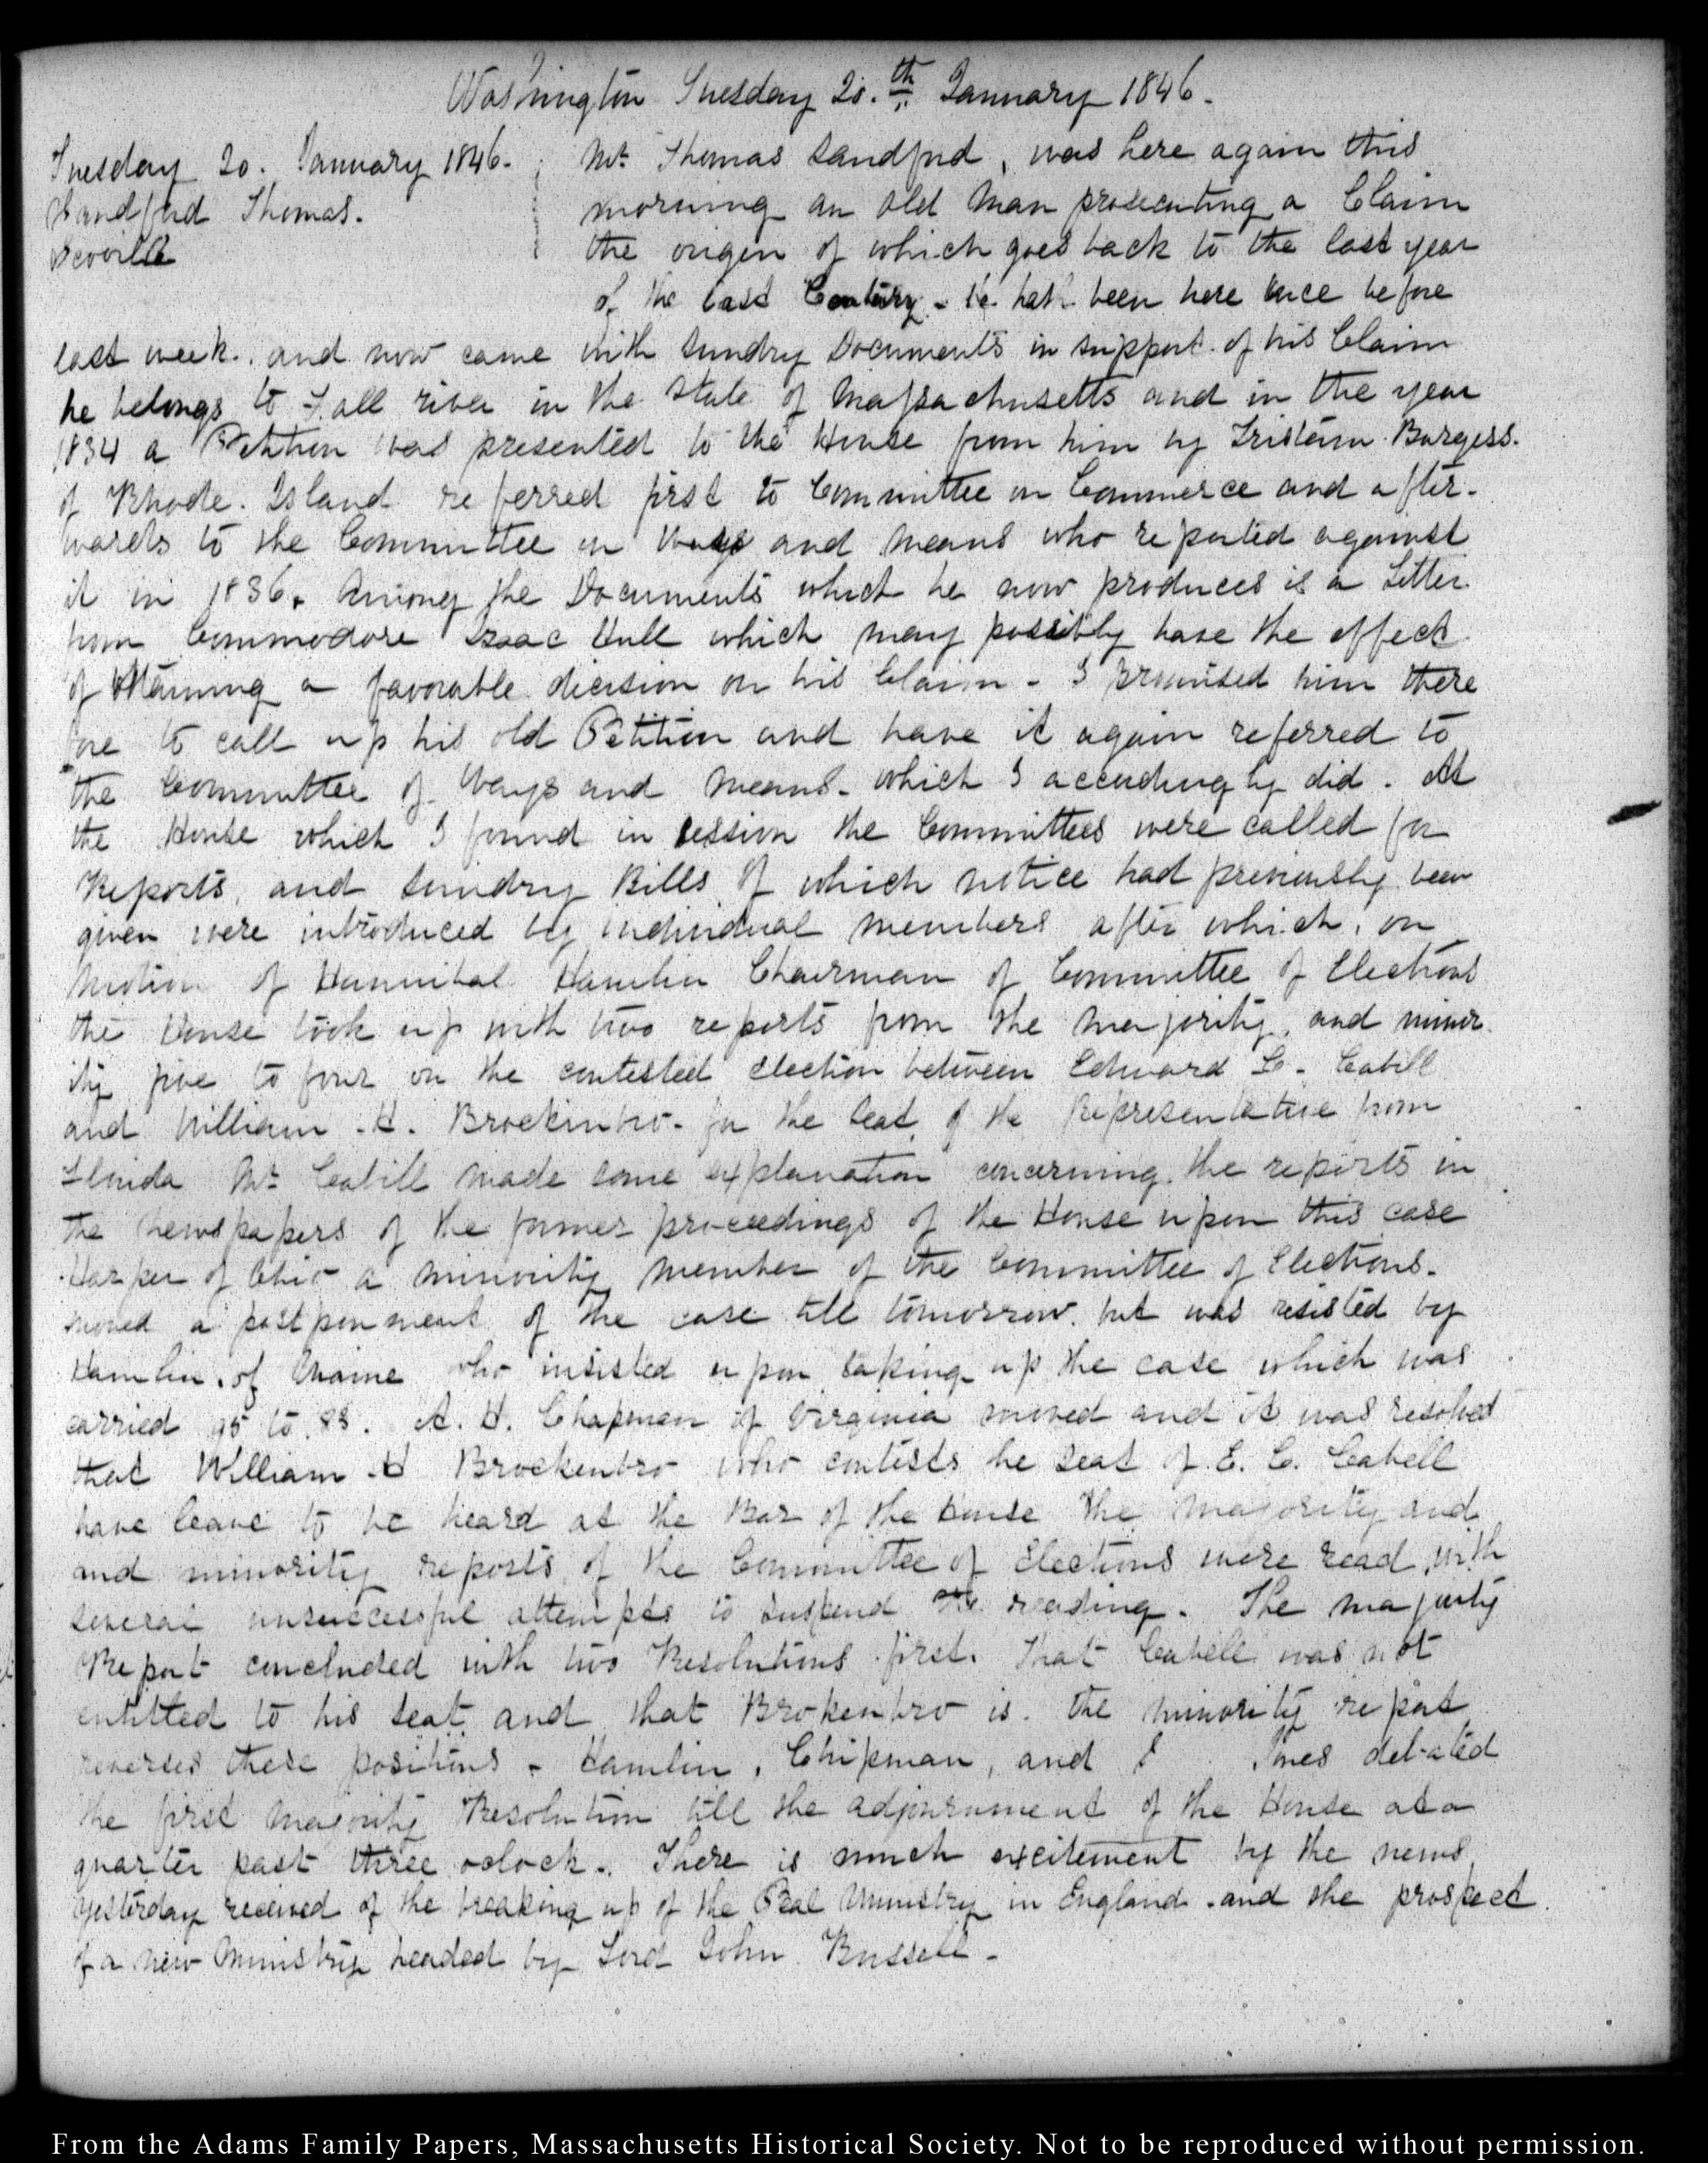 Washington Tuesday 20.th January 1846.
Tuesday 20. January 1846.
Sandford Thomas.
Scoville
Mr. Thomas Sandford, was here again this
morning an old man prosecuting a Claim
the origin of which goes back to the last year
of the last Century - he hath been here once before
last week. and now came with sundry Documents in support of his Claim
he belongs to Fall river in the State of Massachusetts and in the year
1834 a Petition was presented to the House from him by Tristam Burgess.
of Rhode. Island referred first to Committee on Commerce and after-
wards to the Committee on Ways and Means who reported against
it in 1836. Among the Documents which he now produces is a Letter
from Commodore Isaac Hull which may possibly have the effect
of obtaining a favorable decision on his Claim - I promised him there
fore to call up his old Petition and have it again referred to
the Committee of Ways and Means. which I accordingly did. At
the House which I found in session the Committees were called for
Reports, and sundry Bills of which notice had previously been
given were introduced by individual members after which, on
motion of Hannibal Hamlin Chairman of Committee of Elections
the House took up with two reports from the majority, and minor
ity five to four on the contested election between Edward C. Cabill
and William .H. Brockinbro. for the Seat of the Representative from
Florida Mr. Cabill made some explanation concerning the reports in
the newspapers of the former proceedings of the House upon this case
Harper of Ohio a minority member of the Committee of Elections.
moved a postponment of the case till tomorrow. but was resisted by
Hamlin. of Maine who insisted upon taking up the case which was
carried 95 to 83. A. H. Chapman of Virginia moved and it was resolved
that William .H Brockenbro who contests he seat of E. C. Cabell
have leave to be heard at the Bar of the House The majority and
and minority reports of the Committee of Elections were read, with
several unsuccessful attempts to suspend the reading. The majority
Report concluded with two Resolutions first. That Cabell was not
entitled to his seat and that Brokenbro is. the minority report
reverses these positions - Hamlin, Chipman, and J Jones debated
the first majority Resolution till the adjournment of the House at a
quarter past three oclock. There is much excitement by the news
yesterday received of the breaking up of the Peal Ministry in England. and the prospect
of a new Ministry headed by Lord John Russell -
From the Adams Family Papers, Massachusetts Historical Society. Not to be reproduced without permission.